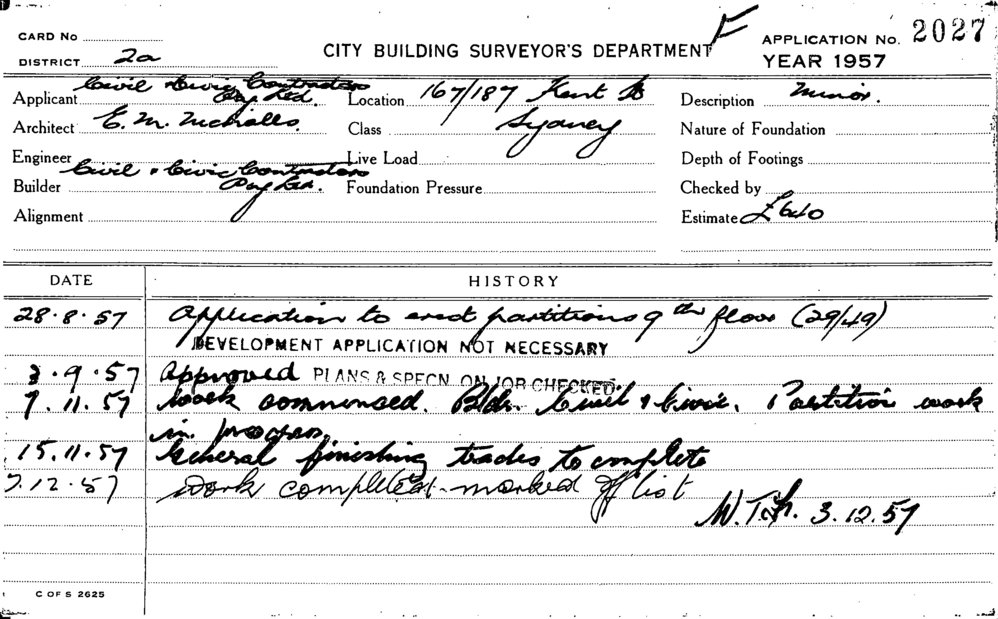 F
CARD No
CITY BUILDING SURVEYOR'S DEPARTMENT
APPLICATION No. 2027
DISTRICT 2a
YEAR 1957
Applicant Civil & Civic Contractors Pty Ltd.
Location 167/187 Kent St Sydney
Description Minor.
Architect E. M. Nicholls.
Class
Nature of Foundation
Engineer
Live Load
Depth of Footings
Builder Civil & Civic Contractors Pty Ltd.
Foundation Pressure
Checked by
Alignment
Estimate £640
DATE HISTORY
28.8.57 Application to erect partitions 9th floor (29/49)
DEVELOPMENT APPLICATION NOT NECESSARY
3.9.57 Approved PLANS & SPECN. ON JOB CHECKED.
7.11.57 Work commenced. Bldr. Civil & Civic. Partition work
in progress
15.11.57 General finishing trades to complete
12.57 Work completed - marked off list
3.12.57
C OF S 2625